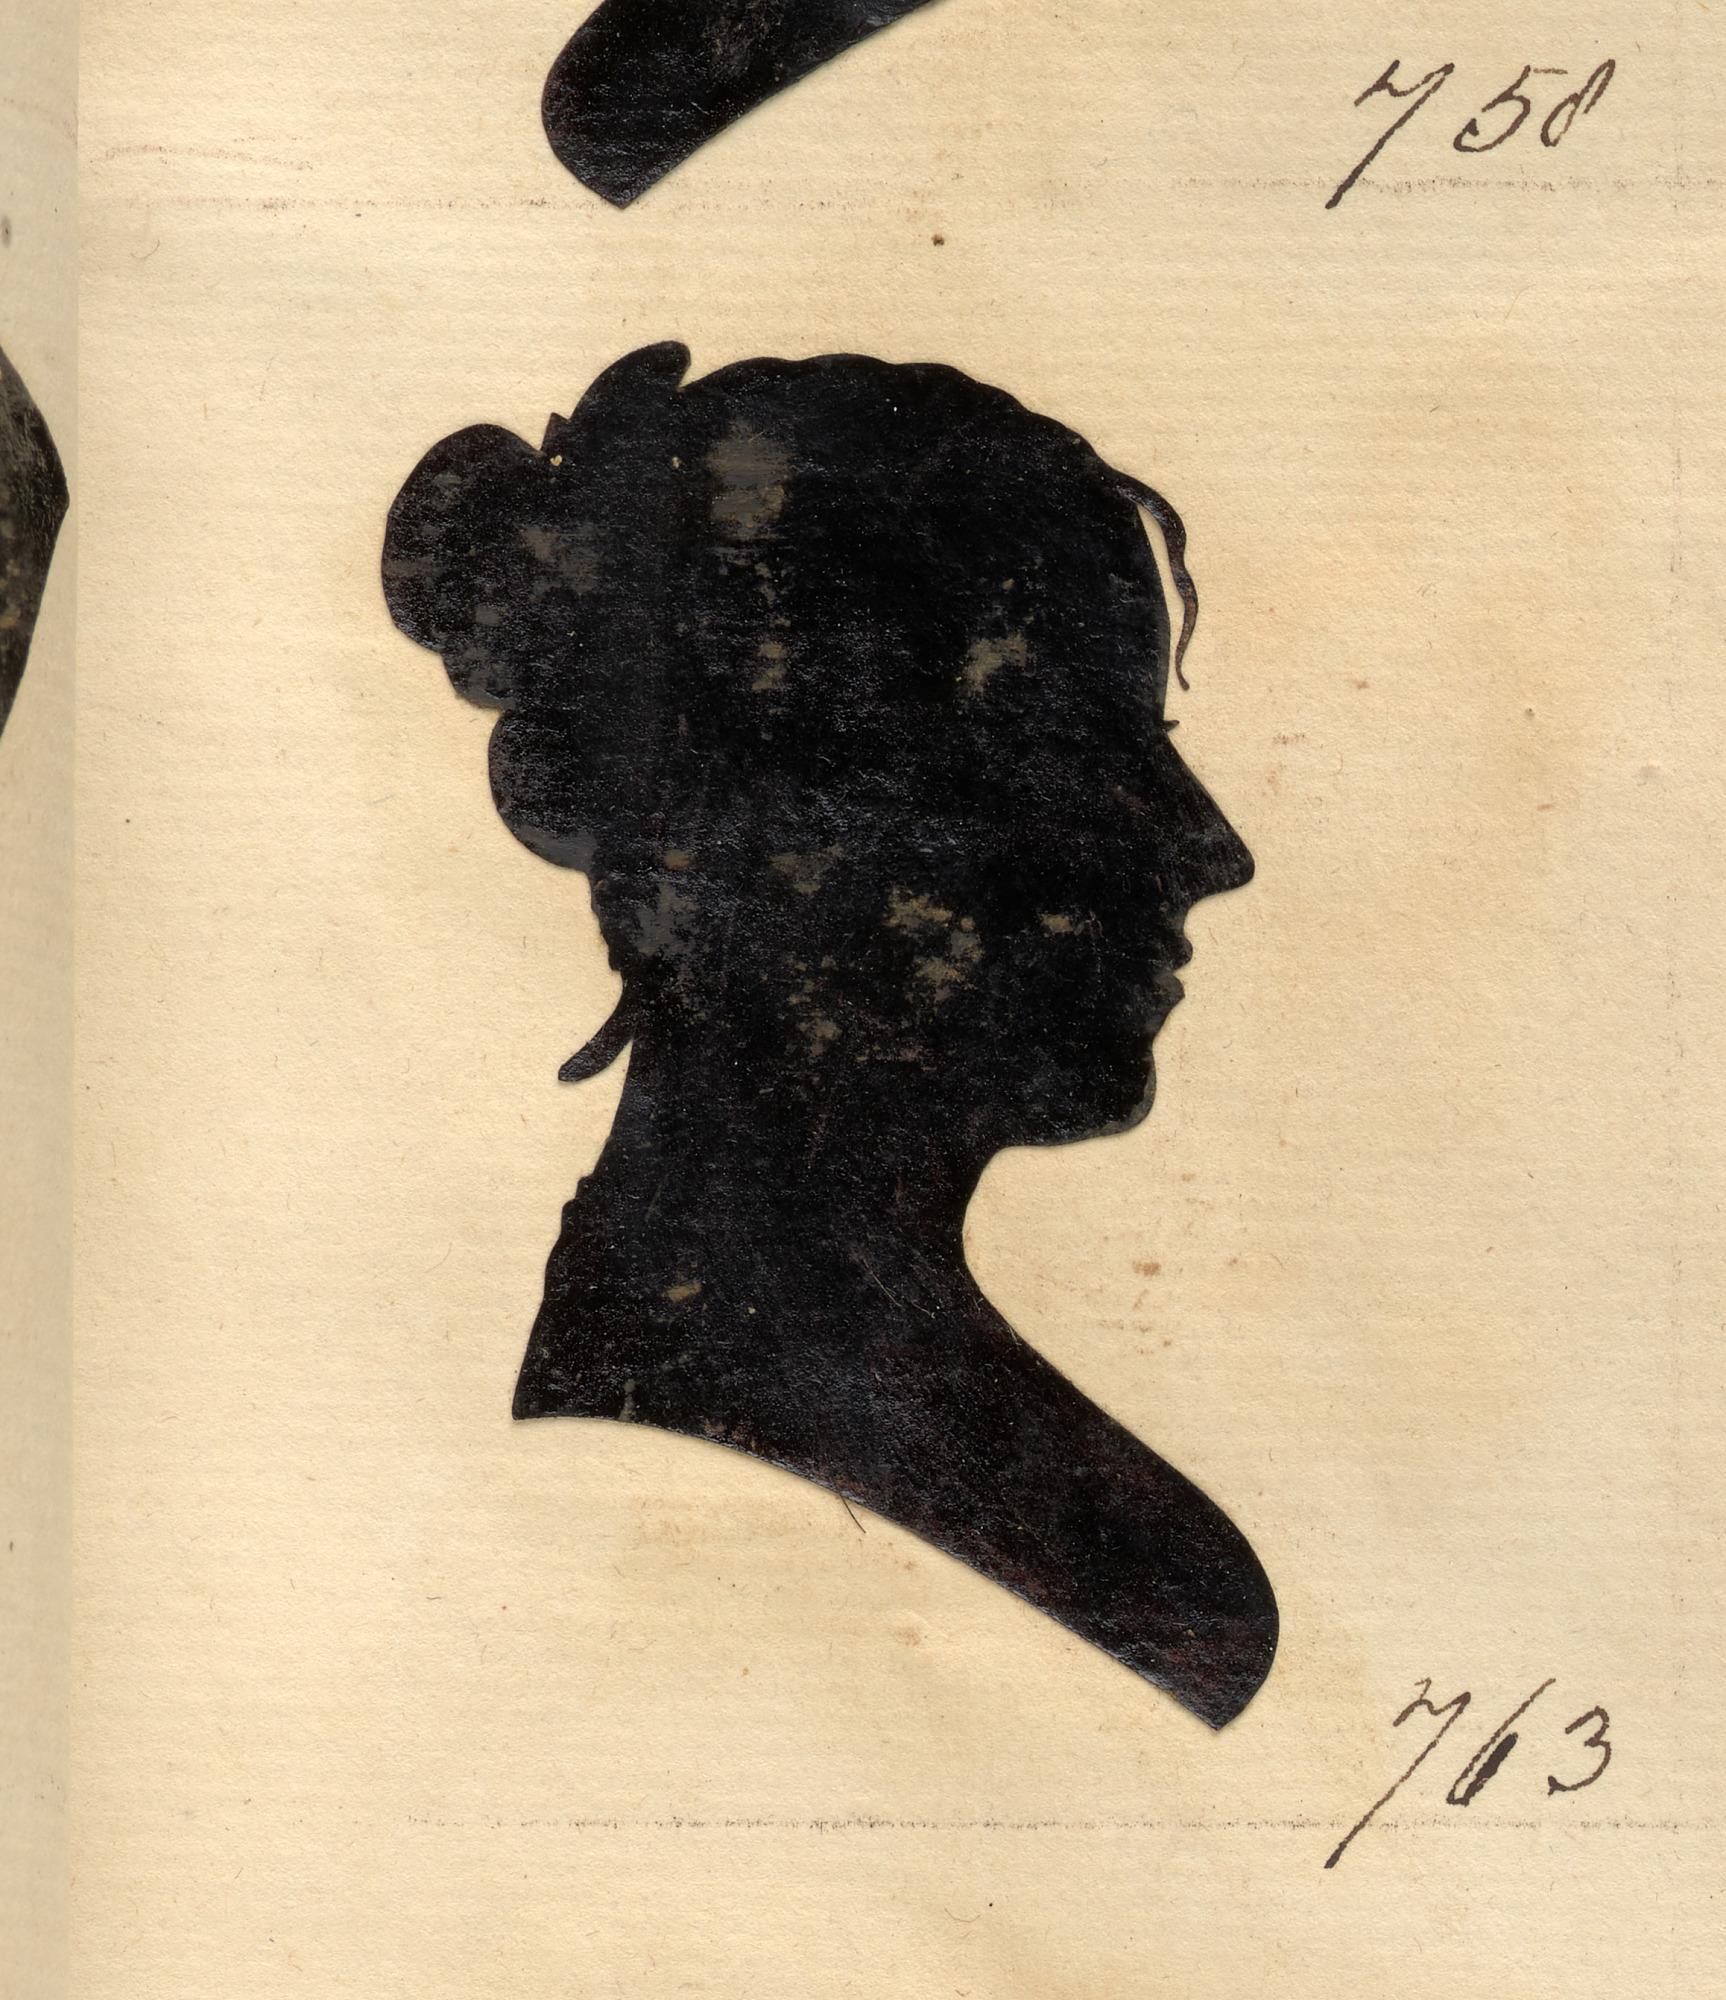 758
763